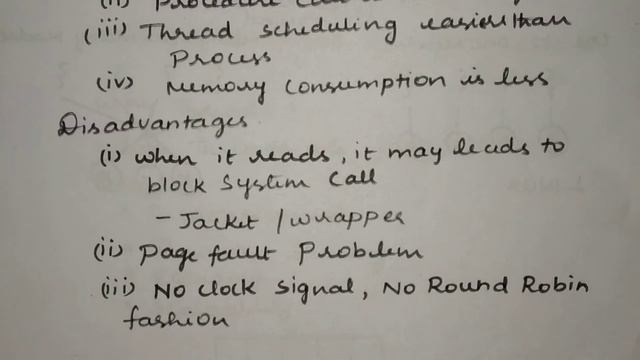 (iii) Thread scheduling easier than
Process
(iv) Memory Consumption is less
Disadvantages
(i) When it reads, it may leads to
block System Call
- Jacket / wrapper
(ii) Page fault Problem
(iii) No clock signal, No Round Robin
fashion